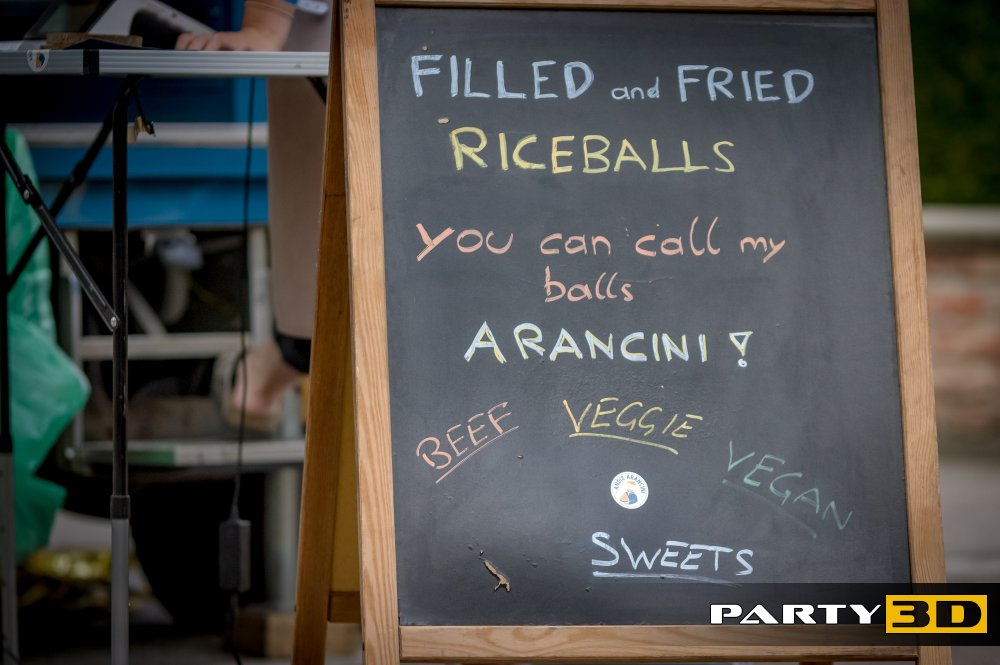 FILLED and FRIED
RICEBALLS
you can call my
balls
ARANCINI!
BEEF
VEGGIE
VEGAN
SWEETS
PARTY 3D